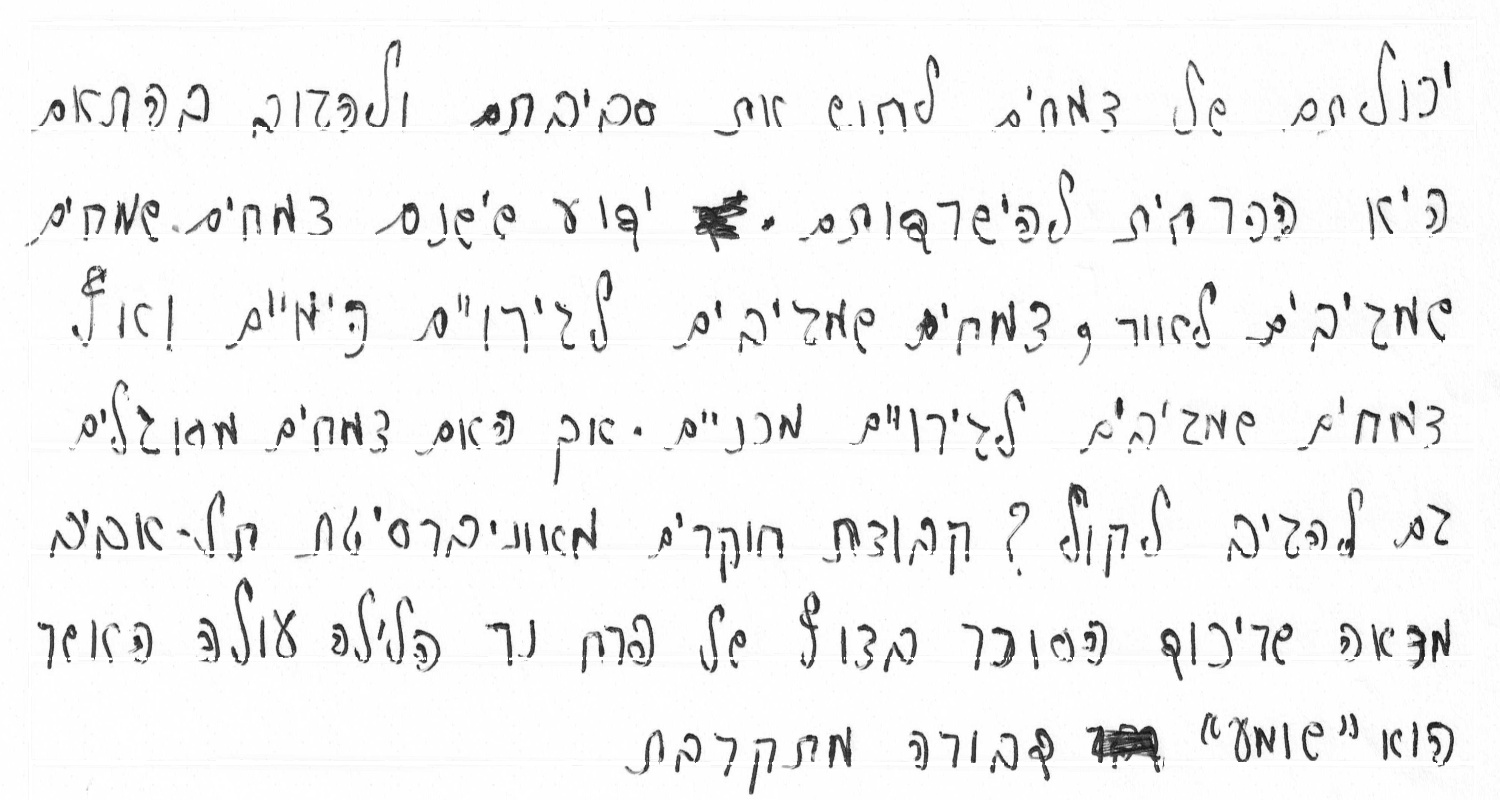 יכולתם של צמחים לחוש את סביבתם ולהגוב בהתאם
היא הכרחית להישרדותם . ידוע שישנם צמחים . שמחים
שמגיבים לאוור , צמחים שמגיבים לגירויים כימיים ואולי
צמחים שמגיבים לגירויים מכניים . אך האם צמחים מגוגלים
גם להגיב לקול ? קבוצת חוקרים מאוניברסיטת תל-אביב
מצאה שריכוז הסוכר בצוף של פרח נר הלילה עולה האשר
הוא "שומע" דבורה מתקרבת